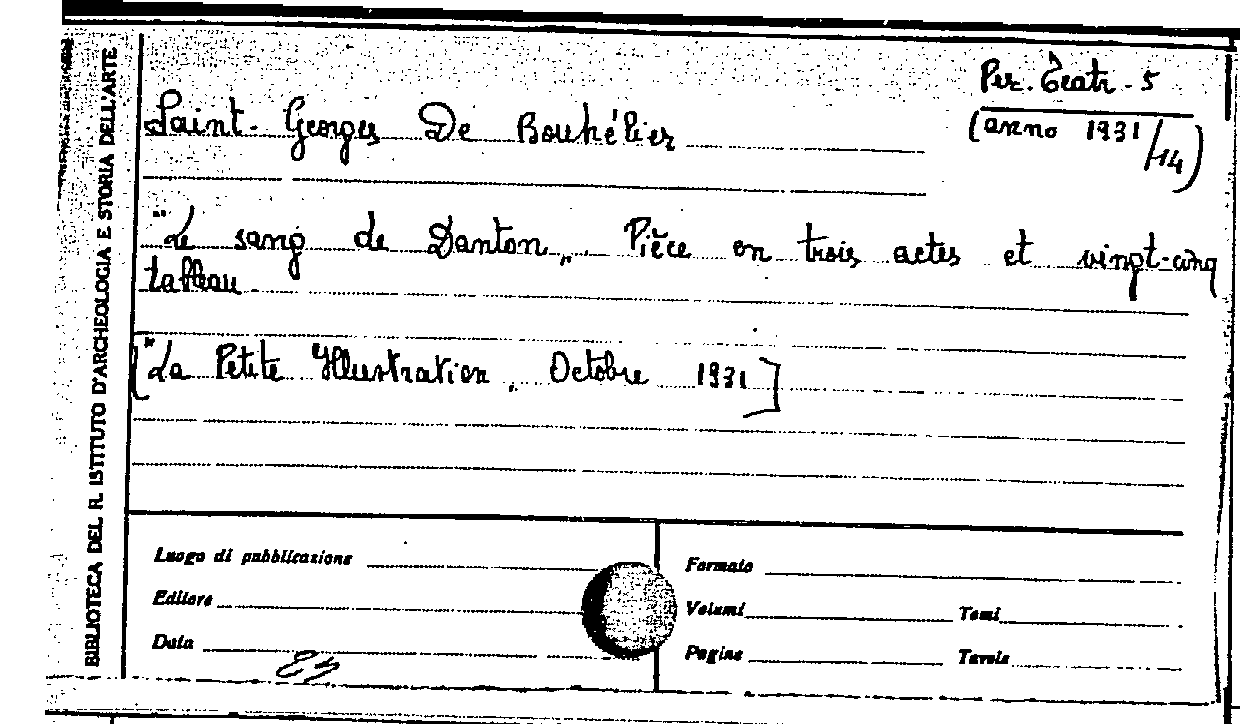 BIBLIOTECA DEL R. ISTITUTO D'ARCHEOLOGIA E STORIA DELL'ARTE
Per. Teatr. - 5
(anno 1931/14)
Saint-Georges De Bouhélier
"Le sang de Danton„ Pièce en trois actes et vingt-cinq
tableau.
["La Petite Illustration, Octobre 1931]
Luogo di pubblicazione
Editore
Data
Formato
Volumi Tomi
Pagine Tavole